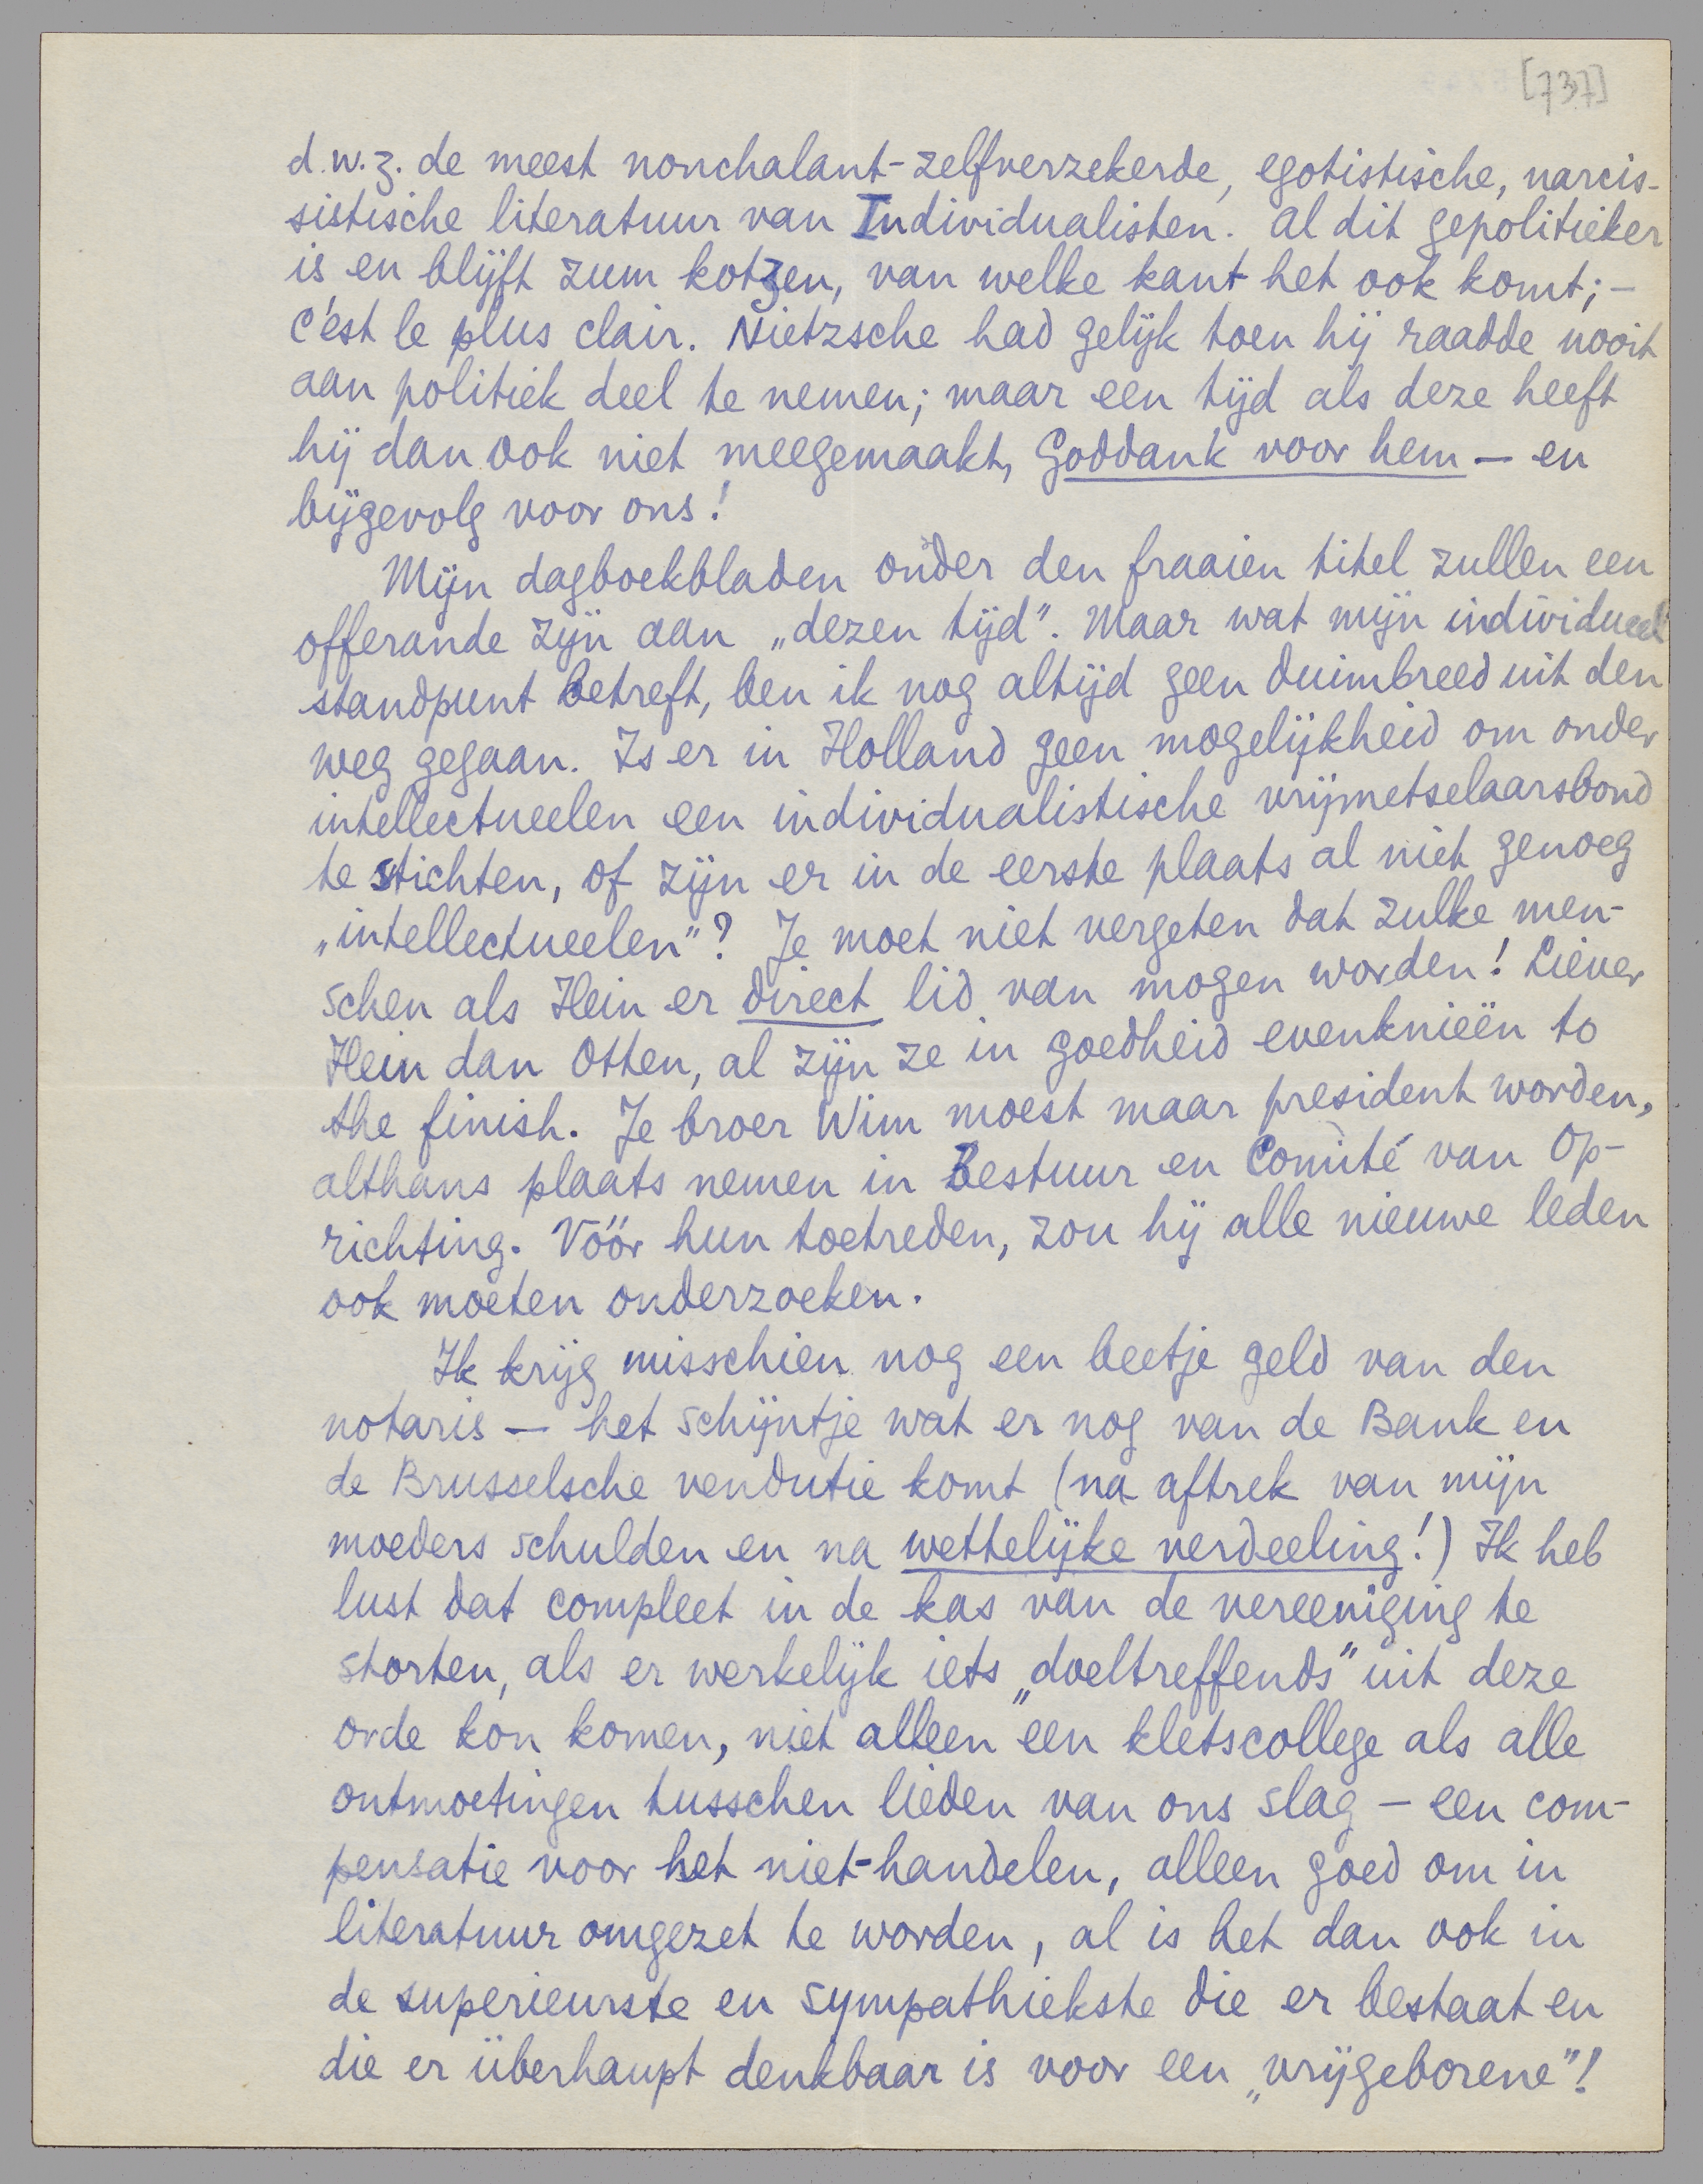 [737]
d.w.z. de meest nonchalant-zelfverzekerde, egotistische, narcis-
sistische literatuur van Individualisten. Al dit gepolitieker
is en blijft zum kotzen, van welke kant het ook komt; –
c'est le plus clair. Nietzsche had gelijk toen hij raadde nooit
aan politiek deel te nemen; maar een tijd als deze heeft
hij dan ook niet meegemaakt, Goddank voor hem – en
bijgevolg voor ons!
Mijn dagboekbladen onder den fraaien titel zullen een
offerande zijn aan „dezen tijd". Maar wat mijn individueel
standpunt betreft, ben ik nog altijd geen duimbreed uit den
weg gegaan. Is er in Holland geen mogelijkheid om onder
intellectueelen een individualistische vrijmetselaarsbond
te stichten, of zijn er in de eerste plaats al niet genoeg
„intellectueelen"? Je moet niet vergeten dat zulke men-
schen als Hein er direct lid van mogen worden! Liever
Hein dan Otten, al zijn ze in goedheid evenknieën to
the finish. Je broer Wim moest maar president worden,
althans plaats nemen in Bestuur en Comité van Op-
richting. Vóór hun toetreden, zou hij alle nieuwe leden
ook moeten onderzoeken.
Ik krijg misschien nog een beetje geld van den
notaris – het schijntje wat er nog van de Bank en
de Brusselsche vendutie komt (na aftrek van mijn
moeders schulden en na wettelijke verdeeling!) Ik heb
lust dat compleet in de kas van de vereeniging te
storten, als er werkelijk iets „doeltreffends" uit deze
orde kon komen, niet alleen een kletscollege als alle
ontmoetingen tusschen lieden van ons slag – een com-
pensatie voor het niet-handelen, alleen goed om in
literatuur omgezet te worden, al is het dan ook in
de superieurste en sympathiekste die er bestaat en
die er überhaupt denkbaar is voor een „vrijgeborene"!